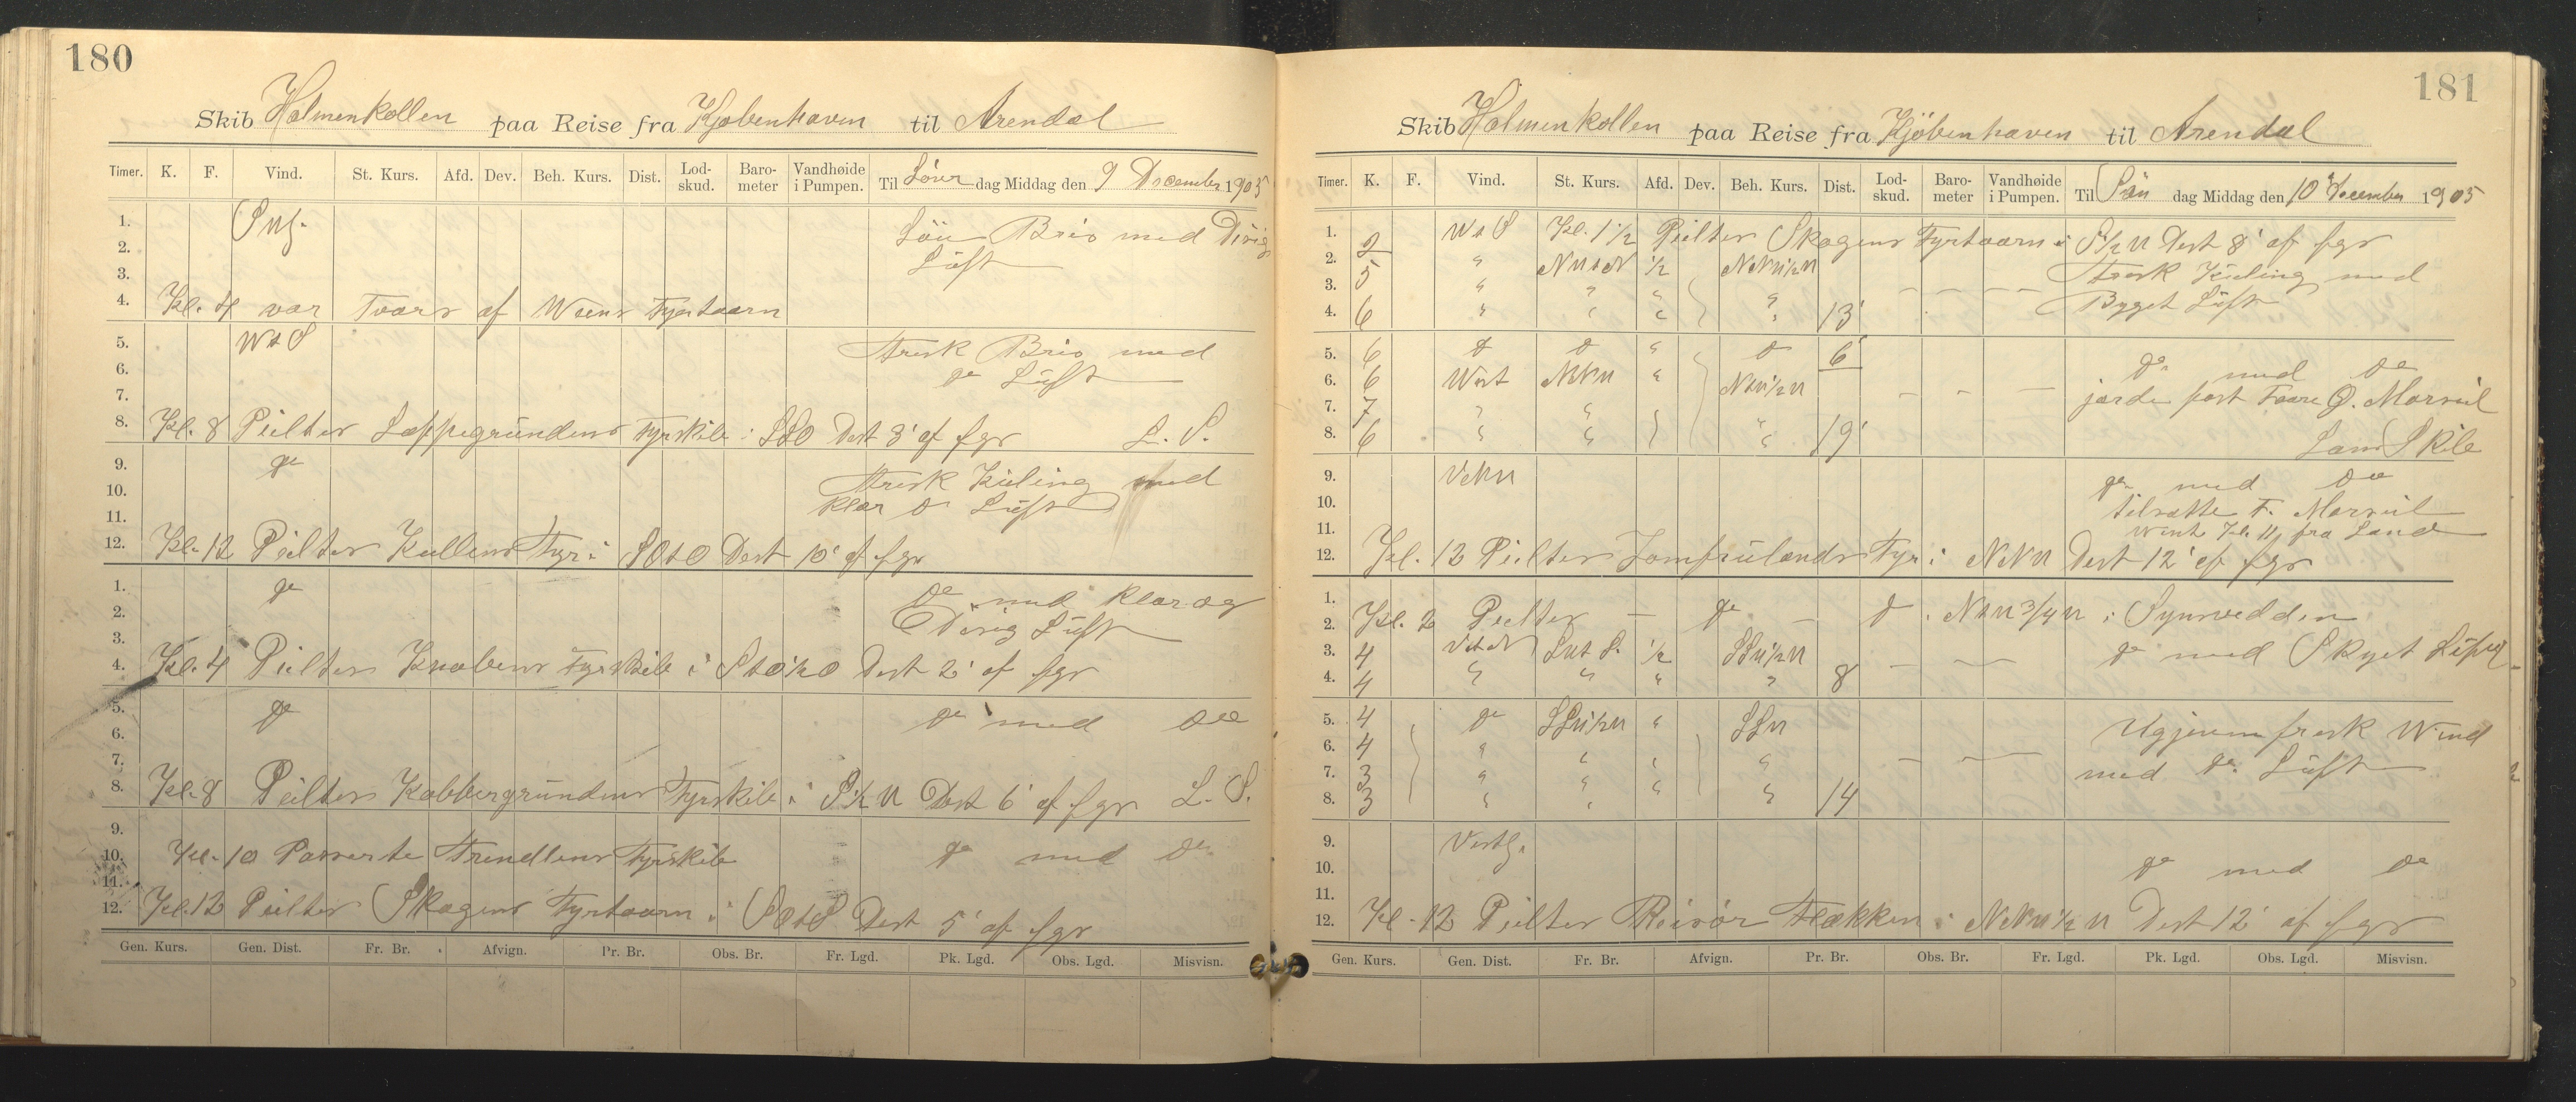 180
Skib Holmenkollen paa Reise fra Kjøbenhaven til Arendal
Timer. K. F. Vind. St. Kurs. Afd. Dev. Beh. Kurs. Dist. Lod-skud. Baro-meter Vandhøide i Pumpen. Til Löver dag Middag den 9 December 1905
1. Löu Bris med Disig
2. Luft
3.
4. Kl. 4 var Tvars af Fyrtaarn
5. WtS Frisk Bris med
6. do Luft
7.
8. Kl. 8 Peilter Lappegrundens Fyrskib i SSO Dist 3' af fgr L. S.
9. do Frisk Kuling med
10. klar do Luft
11.
12. Kl. 12 Peilter Kullens Fyr i SOtO Dist 10' af fgr
1. do do med klar og
2. Disig Luft
3.
4. Kl. 4 Peilter Knobens Fyrskib i StO½O Dist 2' af fgr
5. do do med do
6.
7.
8. Kl. 8 Peilter Kobbergrundens Fyrskib i S½W Dist 6' af fgr L. S.
9.
10. Kl. 10 Passerte Trendlens Fyrskib do med do
11.
12. Kl. 12 Peilter Skagens Fyrtaarn i SOtS Dist 5' af fgr
Gen. Kurs. Gen. Dist. Fr. Br. Afvign. Pr. Br. Obs. Br. Fr. Lgd. Pk. Lgd. Obs. Lgd. Misvisn.
181
Skib Holmenkollen paa Reise fra Kjöbenhaven til Arendal
Timer. K. F. Vind. St. Kurs. Afd. Dev. Beh. Kurs. Dist. Lod-skud. Baro-meter Vandhøide i Pumpen. Til Sön dag Middag den 10 December 1905
1. WtS Kl. 1½ Peilter Skagens Fyrtaarn i S½W Dist 8' af fgr
2. 2 " NWtN ½ NNW½W Frisk Kuling med
3. 5 " " " " Bygget Luft
4. 6 " " " " 13'
5. 6 do do " do 6'
6. 6 West NNW " NW½W do med do
7. 7 " " " jorde fast
8. 6 " " " 19'
9. VNW do med do
10.
11. Kl. 11 fra Land
12. Kl. 12 Peilter Jomfrulands Fyr i NNW Dist 12' af fgr
1.
2. Kl. 2 Peilter – do – do i NtW¾W i Synsvidden
3. 4 VtN SWtS. ½ SSW½W do med Skyet
4. 4 " " " " 8
5. 4 do SSW½W " SSW Ugjevn frisk Wind
6. 4 " " " "
7. 3 " " " " med do Luft
8. 3 " " " " 14
9. Vestl.
10. do med do
11.
12. Kl. 12 Peilter Risör Flækken i NNW½W Dist 12' af fgr
Gen. Kurs. Gen. Dist. Fr. Br. Afvign. Pr. Br. Obs. Br. Fr. Lgd. Pk. Lgd. Obs. Lgd. Misvisn.